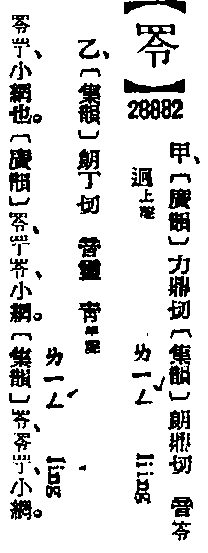 【䍅】
28882
甲、〔廣韻〕力鼎切〔集韻〕朗鼎切 音笭
迥上聲 ㄌㄧㄥˇ liing
乙、〔集韻〕朗丁切 音靈 靑平聲
ㄌㄧㄥˊ ling
䍅、小網也。〔廣韻〕䍅、䍅、小網。〔集韻〕䍅、䍅、小網。